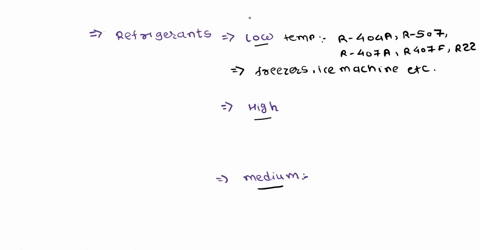 => Refrigerants => Low temp:- R-404A, R-507,
R-407A, R407F, R22
=> freezers, ice machine etc.
=> High
=> medium:-